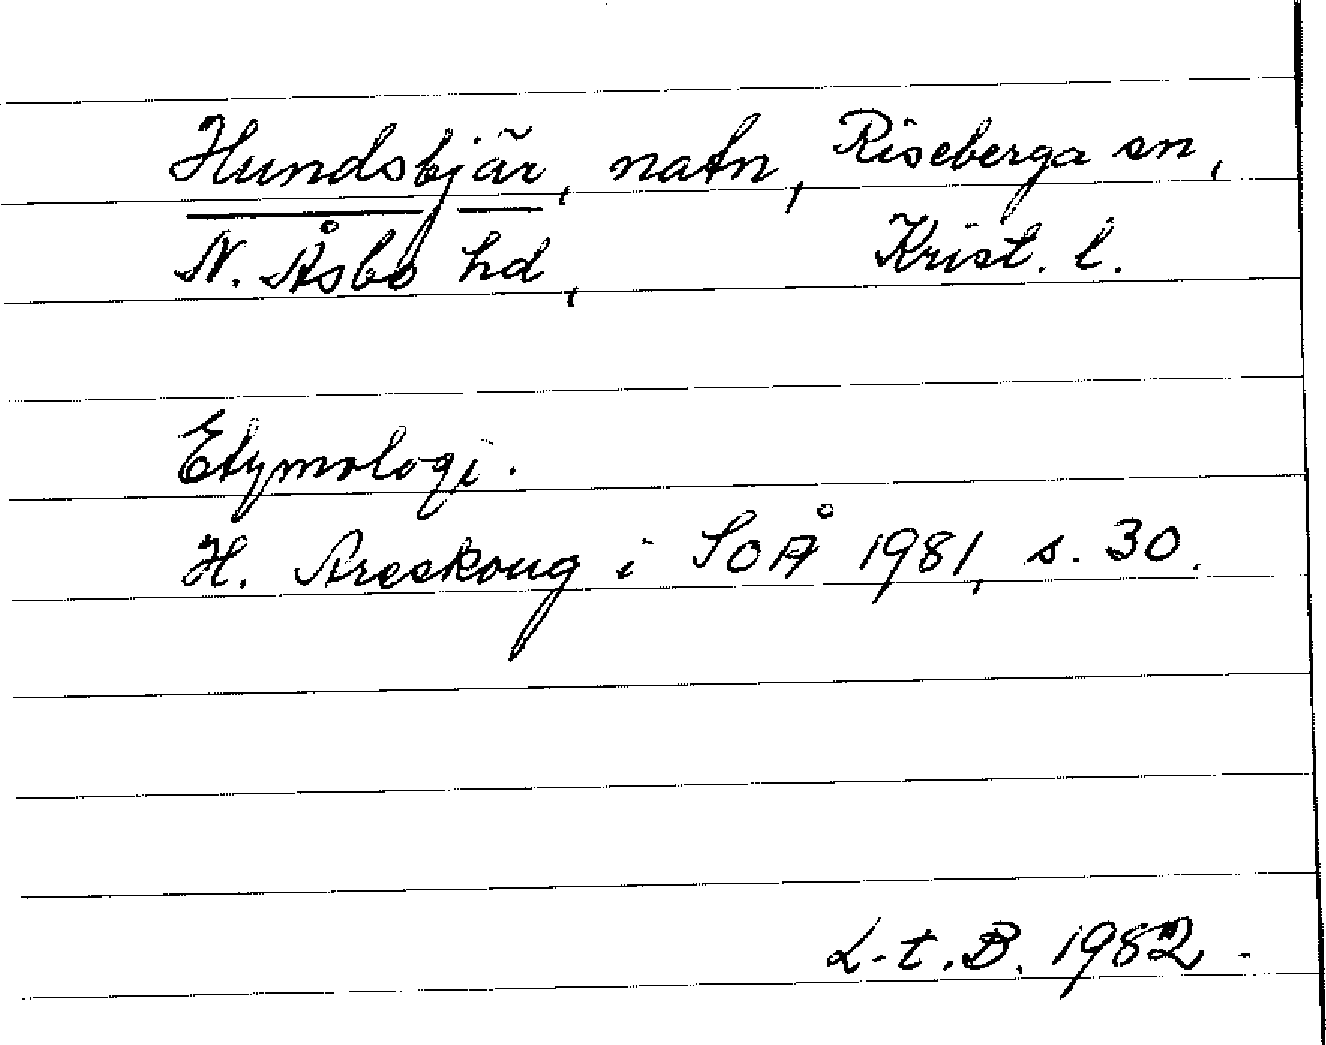 Hundsbjär, natn, Riseberga sn,
N. Åsbo hd, Krist. l.
Etymologi.
H. Areskoug i SOÅ 1981, s. 30.
L-t. B. 1982.